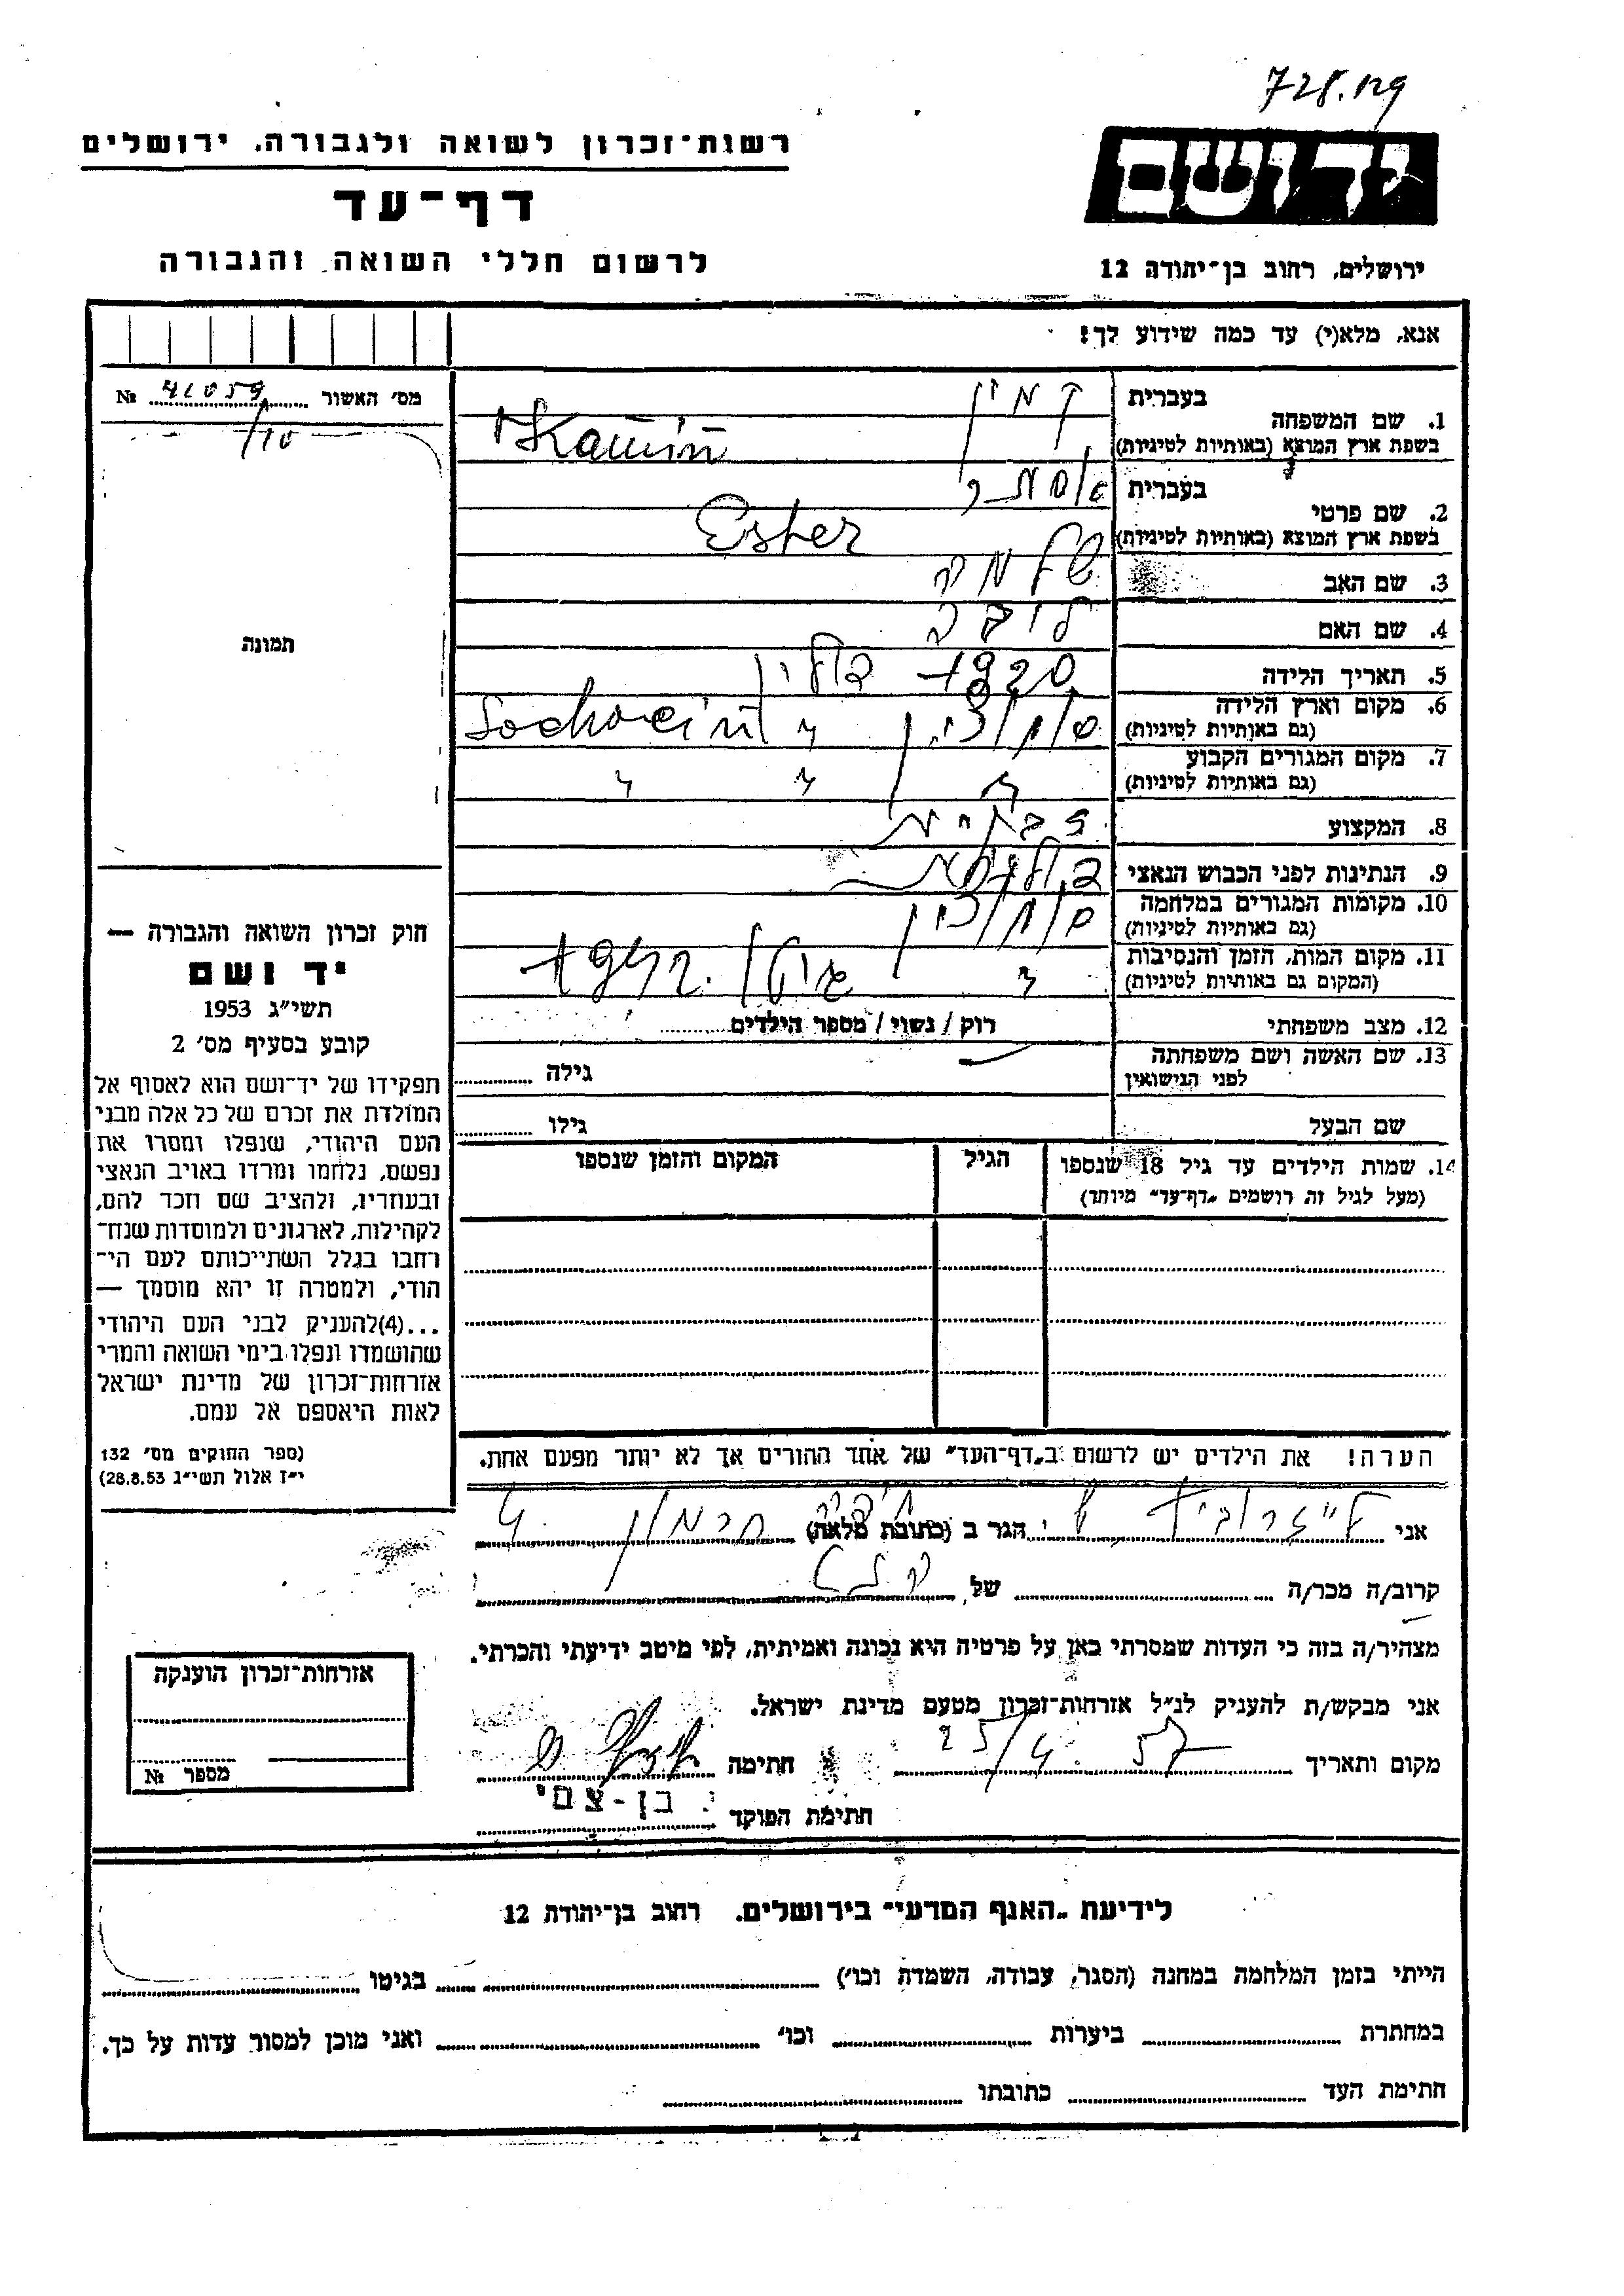 728.129
רשות־זכרון לשואה ולגבורה, ירושלים
יד ושם
דף־עד
לרשום חללי השואה והגבורה
ירושלים, רחוב בן־יהודה 12
אנא, מלא(י) עד כמה שידוע לך!
מס׳ האשור № 41059
/10
1. שם המשפחה
בעברית קמין
בשפת ארץ המוצא (באותיות לטיניות) Kamin
2. שם פרטי
בעברית אסתר
בשפת ארץ המוצא (באותיות לטיניות) Ester
3. שם האב שלמה
4. שם האם ליבה
תמונה
5. תאריך הלידה 1920 פולין
6. מקום וארץ הלידה
(גם באותיות לטיניות) סוחוצין " Sochocin
7. מקום המגורים הקבוע
(גם באותיות לטיניות) " " "
8. המקצוע זבנית
9. הנתינות לפני הכבוש הנאצי פולנית
10. מקומות המגורים במלחמה
(גם באותיות לטיניות) סוחוצין
11. מקום המות, הזמן והנסיבות
(המקום גם באותיות לטיניות) "
12. מצב משפחתי רוק / נשוי / מספר הילדים
13. שם האשה ושם משפחתה
לפני הנישואין גילה
שם הבעל גילו
14. שמות הילדים עד גיל 18 שנספו
(מעל לגיל זה רושמים „דף־עד״ מיוחד)
הגיל
המקום והזמן שנספו
חוק זכרון השואה והגבורה —
יד ושם
תשי״ג 1953
קובע בסעיף מס׳ 2
תפקידו של יד־ושם הוא לאסוף אל
המולדת את זכרם של כל אלה מבני
העם היהודי, שנפלו ומסרו את
נפשם, נלחמו ומרדו באויב הנאצי
ובעוזריו, ולהציב שם וזכר להם,
לקהילות, לארגונים ולמוסדות שנח־
רבו בגלל השתייכותם לעם הי־
הודי, ולמטרה זו יהא מוסמך —
...(4)להעניק לבני העם היהודי
שהושמדו ונפלו בימי השואה והמרי
אזרחות־זכרון של מדינת ישראל
לאות היאספם אל עמם.
(ספר החוקים מס׳ 132
י״ז אלול תשי״ג 28.8.53)
הערה! את הילדים יש לרשום ב„דף־העד״ של אחד ההורים אך לא יותר מפעם אחת.
אני הגר ב (כתובת מלאה) חיפה חרמון 4
קרוב/ה מכר/ה של
מצהיר/ה בזה כי העדות שמסרתי כאן על פרטיה היא נכונה ואמיתית, לפי מיטב ידיעתי והכרתי.
אני מבקש/ת להעניק לנ״ל אזרחות־זכרון מטעם מדינת ישראל.
מקום ותאריך 25/4 57 חתימה
חתימת הפוקד בן-צבי
אזרחות־זכרון הוענקה
מספר №
לידיעת „האגף המדעי״ בירושלים, רחוב בן־יהודה 12
הייתי בזמן המלחמה במחנה (הסגר, עבודה, השמדה וכו׳) בגיטו
במחתרת ביערות וכו׳ ואני מוכן למסור עדות על כך.
חתימת העד כתובתו